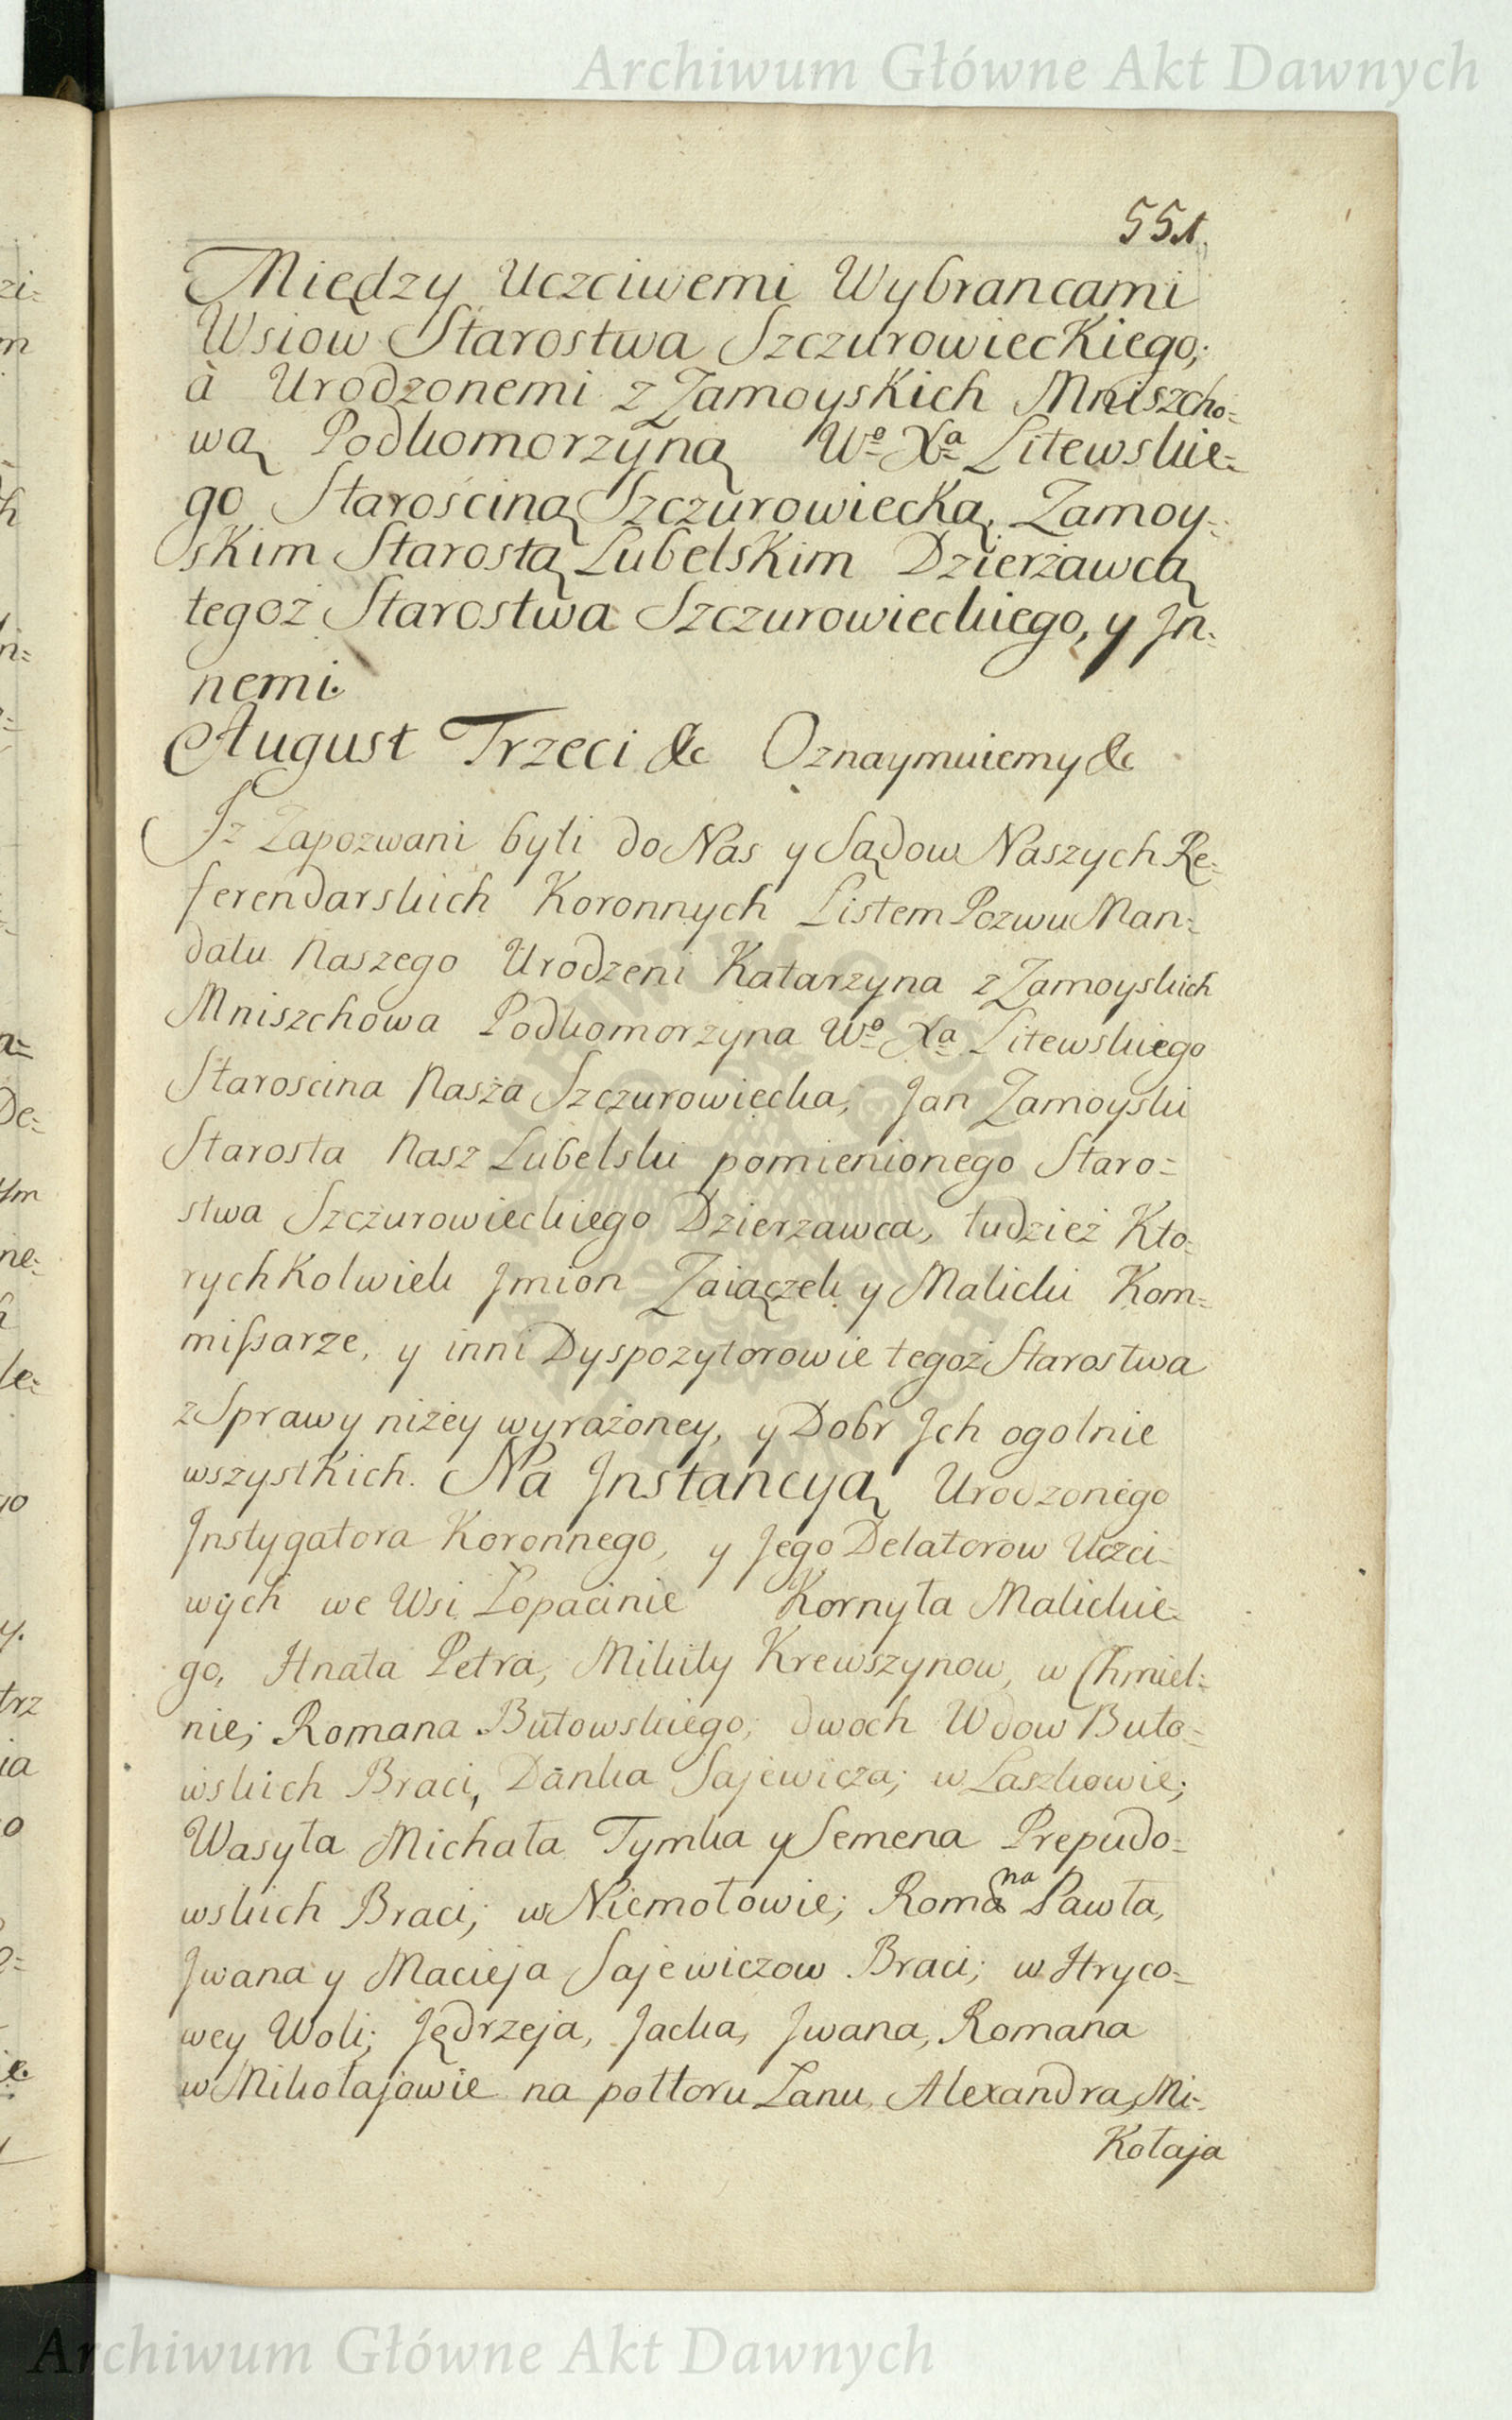 Archiwum Główne Akt Dawnych
551.
Między Uczciwemi Wybrancami
Wsiow Starostwa Szczurowieckiego;
à Urodzonemi z Zamoyskich Mniszcho=
wą Podkomorzyną Wº Xª Litewskie=
go Starościną Szczurowiecką, Zamoy=
skim Starostą Lubelskim Dzierżawcą
tegoż Starostwa Szczurowieckiego, y Jn=
nemi.
August Trzeci &c Oznaymuiemy &c
Jż Zapozwani byli do Nas y Sądow Naszych Re=
ferendarskich Koronnych Listem Pozwu Man=
datu Naszego Urodzeni Katarzyna z Zamoyskich
Mniszchowa Podkomorzyna Wº Xª Litewskiego
Staroscina Nasza Szczurowiecka, Jan Zamoyski
Starosta Nasz Lubelski pomienionego Staro=
stwa Szczurowieckiego Dzierzawca, tudzież Kto=
rychkolwiek Jmion Zaiączek y Malicki Kom=
missarze, y inni Dyspozytorowie tegoż Starostwa
z Sprawy niżey wyrażoney, y Dobr Jch ogolnie
wszystkich. Na Jnstancyą Urodzonego
Jnstygatora Koronnego, y Jego Delatorow Uczci=
wych we Wsi Łopacinie Kornyła Malickie=
go, Hnata Petra, Mikity Krewszynow, w Chmiel=
nie; Romana Butowskiego; dwoch Wdow Buto=
wskich Braci, Danka Sajewicza; w Laszkowie;
Wasyla Michała Tymka y Semena Prepudo=
wskich Braci; w Niemotowie; Romana Pawła,
Jwana y Macieja Sajewiczow Braci; w Hryco=
wey Woli; Jędrzeja, Jacka, Jwana, Romana
w Mikołajowie na połtoru Łanu, Alexandra, Mi=
kołaja
Archiwum Główne Akt Dawnych